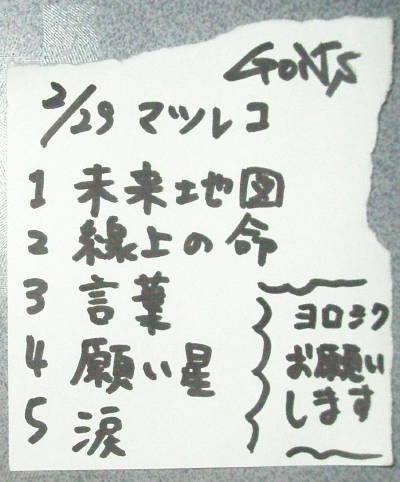 GONん
2/29 マツレコ
1 未来地図
2 線上の命
3 言葉
4 願い星
5 涙
ヨロシク
お願い
します